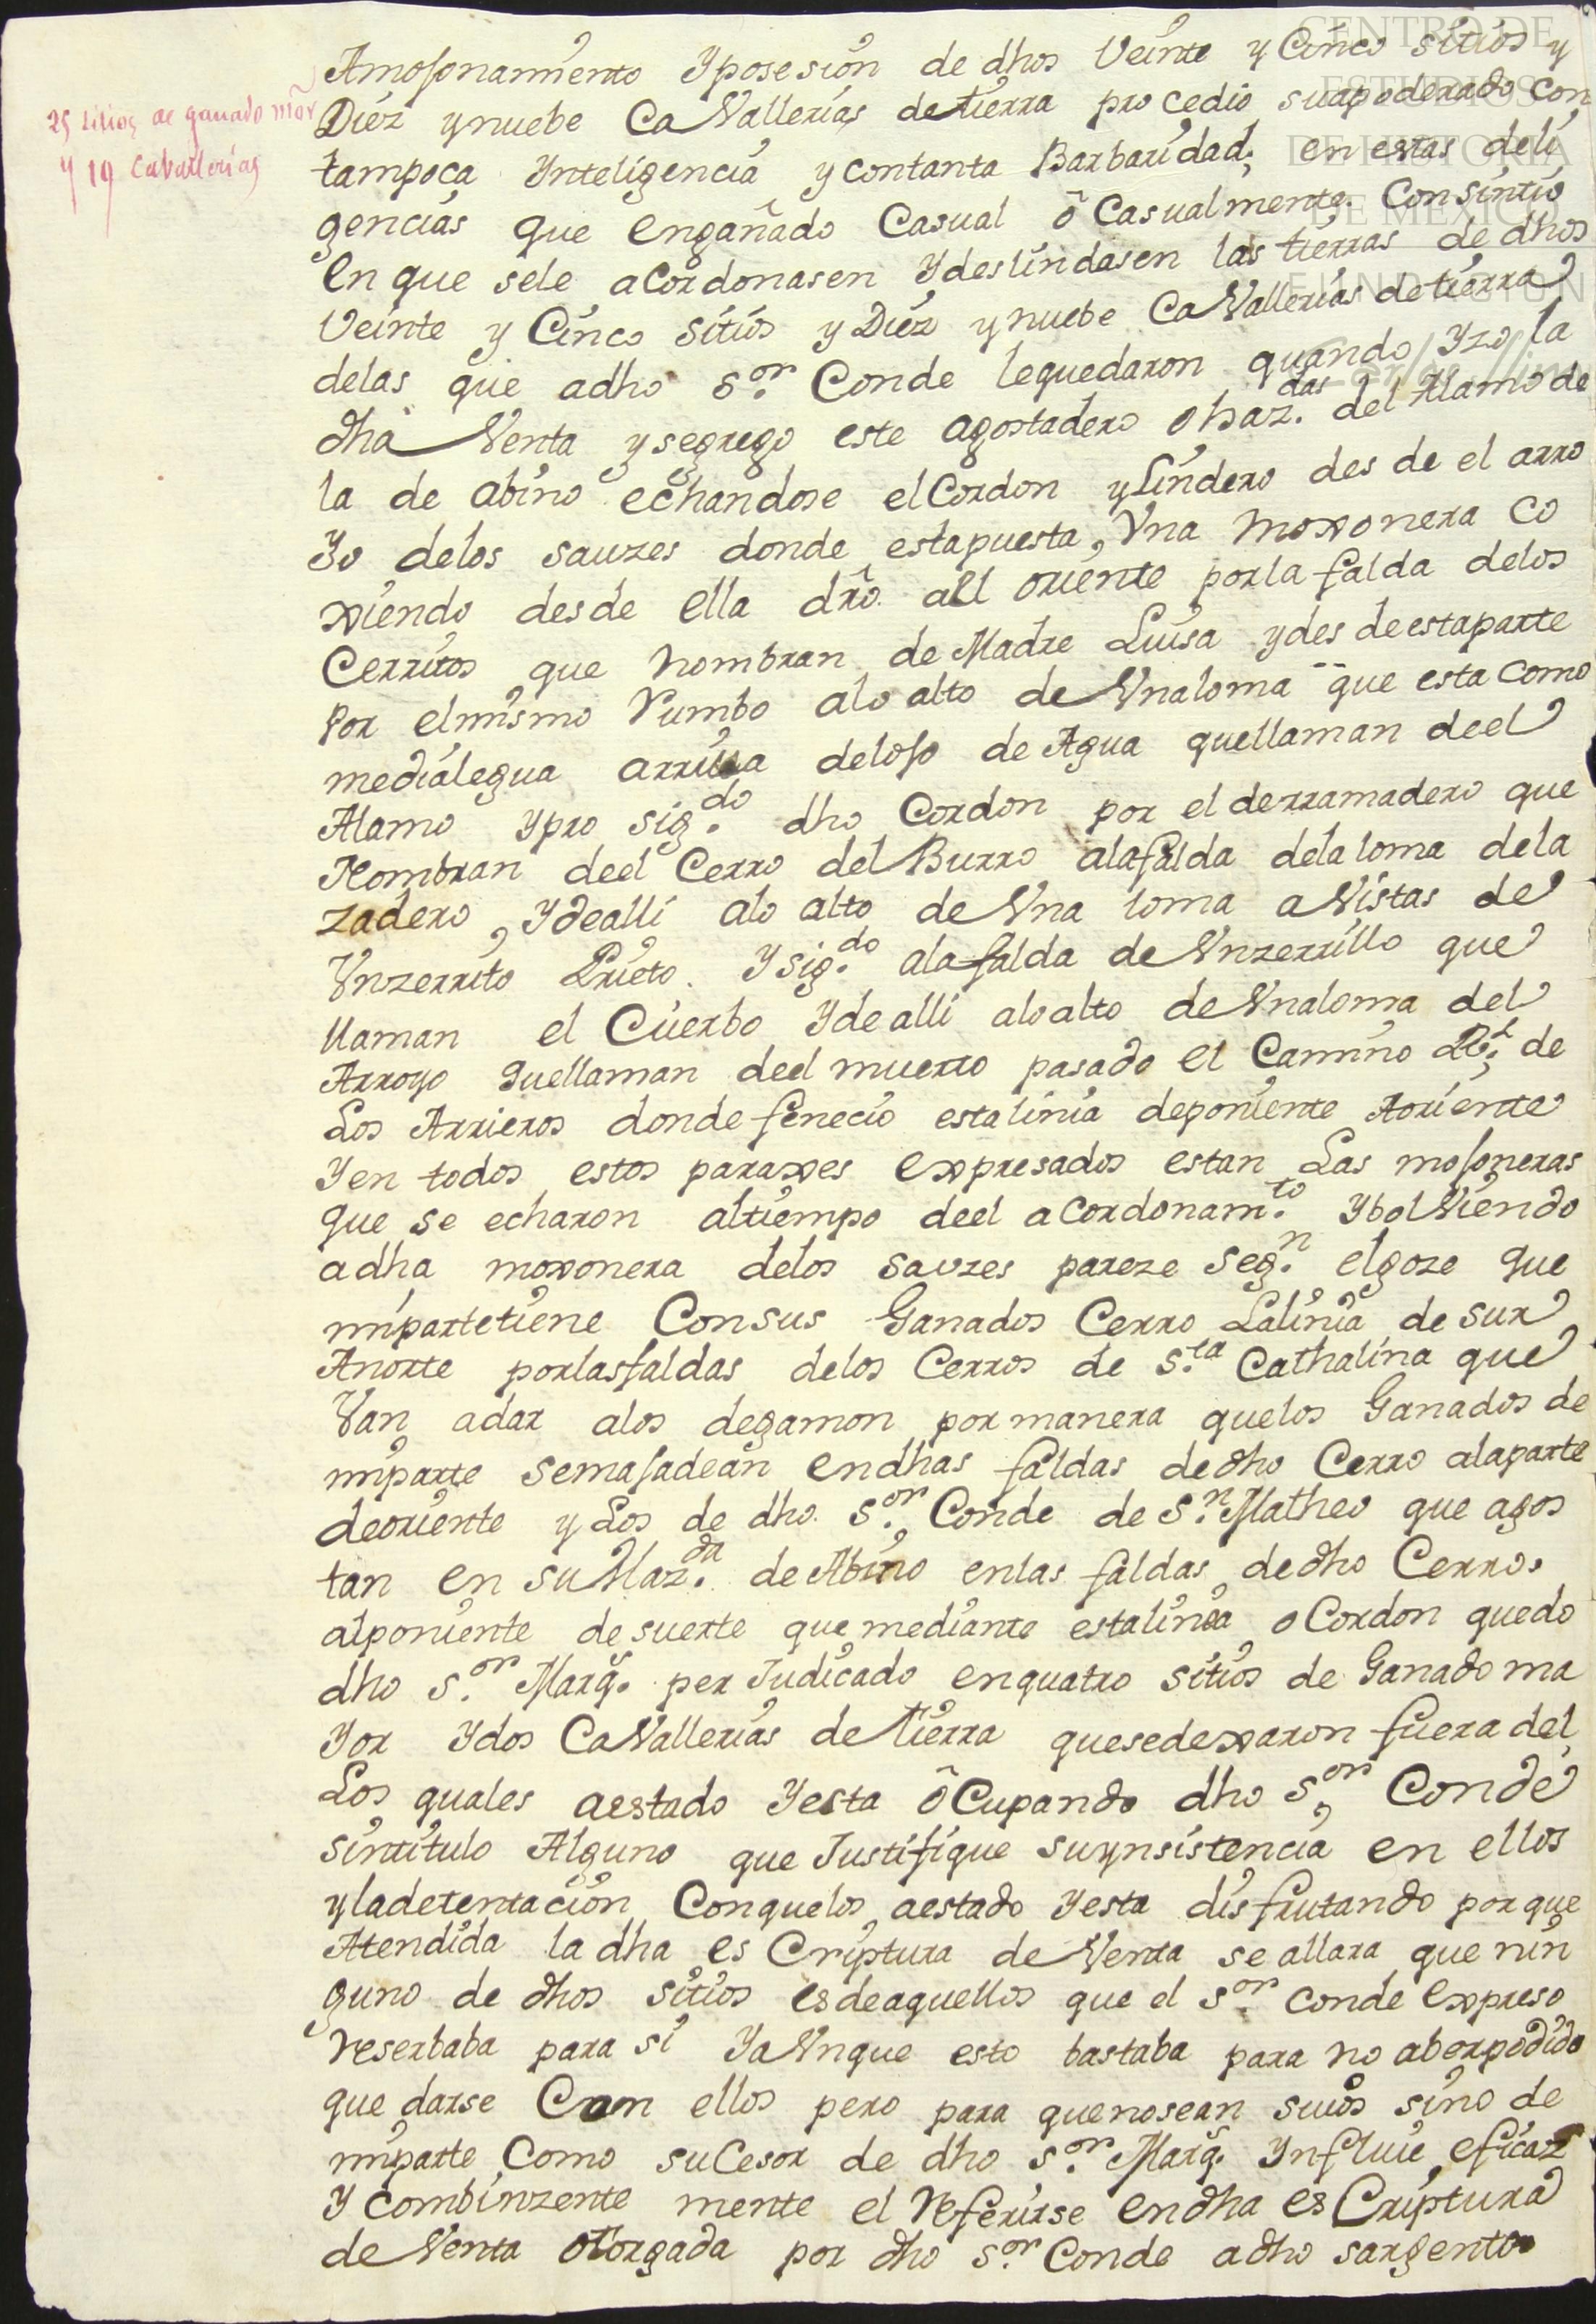 25 sitios de ganado mōr
y 19 Caballerias
Amojonamiento Yposesion de dhos Veinte y Cinco sitios y
Diez ynuebe CaVallerias detierra procedio suapoderado con
tampoca Ynteligencia y contanta Barbaridad, en estas deli
gencias que engañado Casual ô Casualmente. Consintio
en que sele aCordonasen Ydeslindasen las tierras de dhos
Veinte y Cinco sitios y Diez ynuebe CaVallerias detierra
delas que adho s.or Conde lequedaron quando Yzo la
dha Venta ysegrego este agostadero o haz.das del Alamo de
la de abino echandose elCordon yLindero des de el arro
Yo delos sauzes donde estapuesta, Vna moxonera co
xriendo desde ella dro. all oriente porla falda delos
Cerritos que nombran de Madre Luisa ydes deestaparte
Por elmismo Rumbo alo alto de Vnaloma que esta como
medialegua arriba delojo de Agua quellaman deel
Alamo Ypro sig.do dho Cordon por el derramadero que
Nombran deel Cerro del Burro alafalda delaloma dela
zadero, Ydealli alo alto de Vna loma aVistas de
Vnzerrito Prieto. Ysig.do alafalda de Vnzerrillo que
llaman el Cuerbo Ydealli aloalto de Vnaloma del
Arroyo quellaman deel muerto pasado el Camino R.l de
Los Arrieros donde fenecio estalinia deponiente Aoriente
Yen todos estos paraxes expresados estan Las mojoneras
que se echaron altiempo deel aCordonam.to YbolViendo
adha moxonera delos sauzes pareze seg.n elgoze que
miparte tiene Consus Ganados Cerro Lalinia de sur
Anorte porlasfaldas delos Cerros de S.ta Cathalina que
Van adar alos degamon por manera quelos Ganados de
miparte semajadean endhas faldas dedho Cerro alaparte
deoriente y Los de dho. s.or Conde de S.n Matheo que agos
tan en su Haz.da de Abino enlas faldas dedho Cerro.
alponiente de suerte que mediante estalinia o Cordon quedo
dho s.or Marq̃. per Judicado enquatro sitios de Ganado ma
Yor Ydos CaVallerias de tierra quesedexaron fuera del
Los quales aestado Yesta ôCupando dho s.or Conde
sintitulo Alguno que Justifique suynsistencia en ellos
yladetentacion Conquelos aestado Yesta disfrutando por que
Atendida la dha es Criptura de Venta se allara que nin
guno de dhos sitios esdeaquellos que el s.or conde expreso
reserbaba para si YaVnque esto bastaba para no aberpodido
que darse Con ellos pero para quenosean suios sino de
miparte Como suCesor de dho s.or Marq̃. Ynfluie eficaz
Y combinzente mente el Referirse endha esCriptura
de Venta otorgada por dho s.or Conde adho sargento